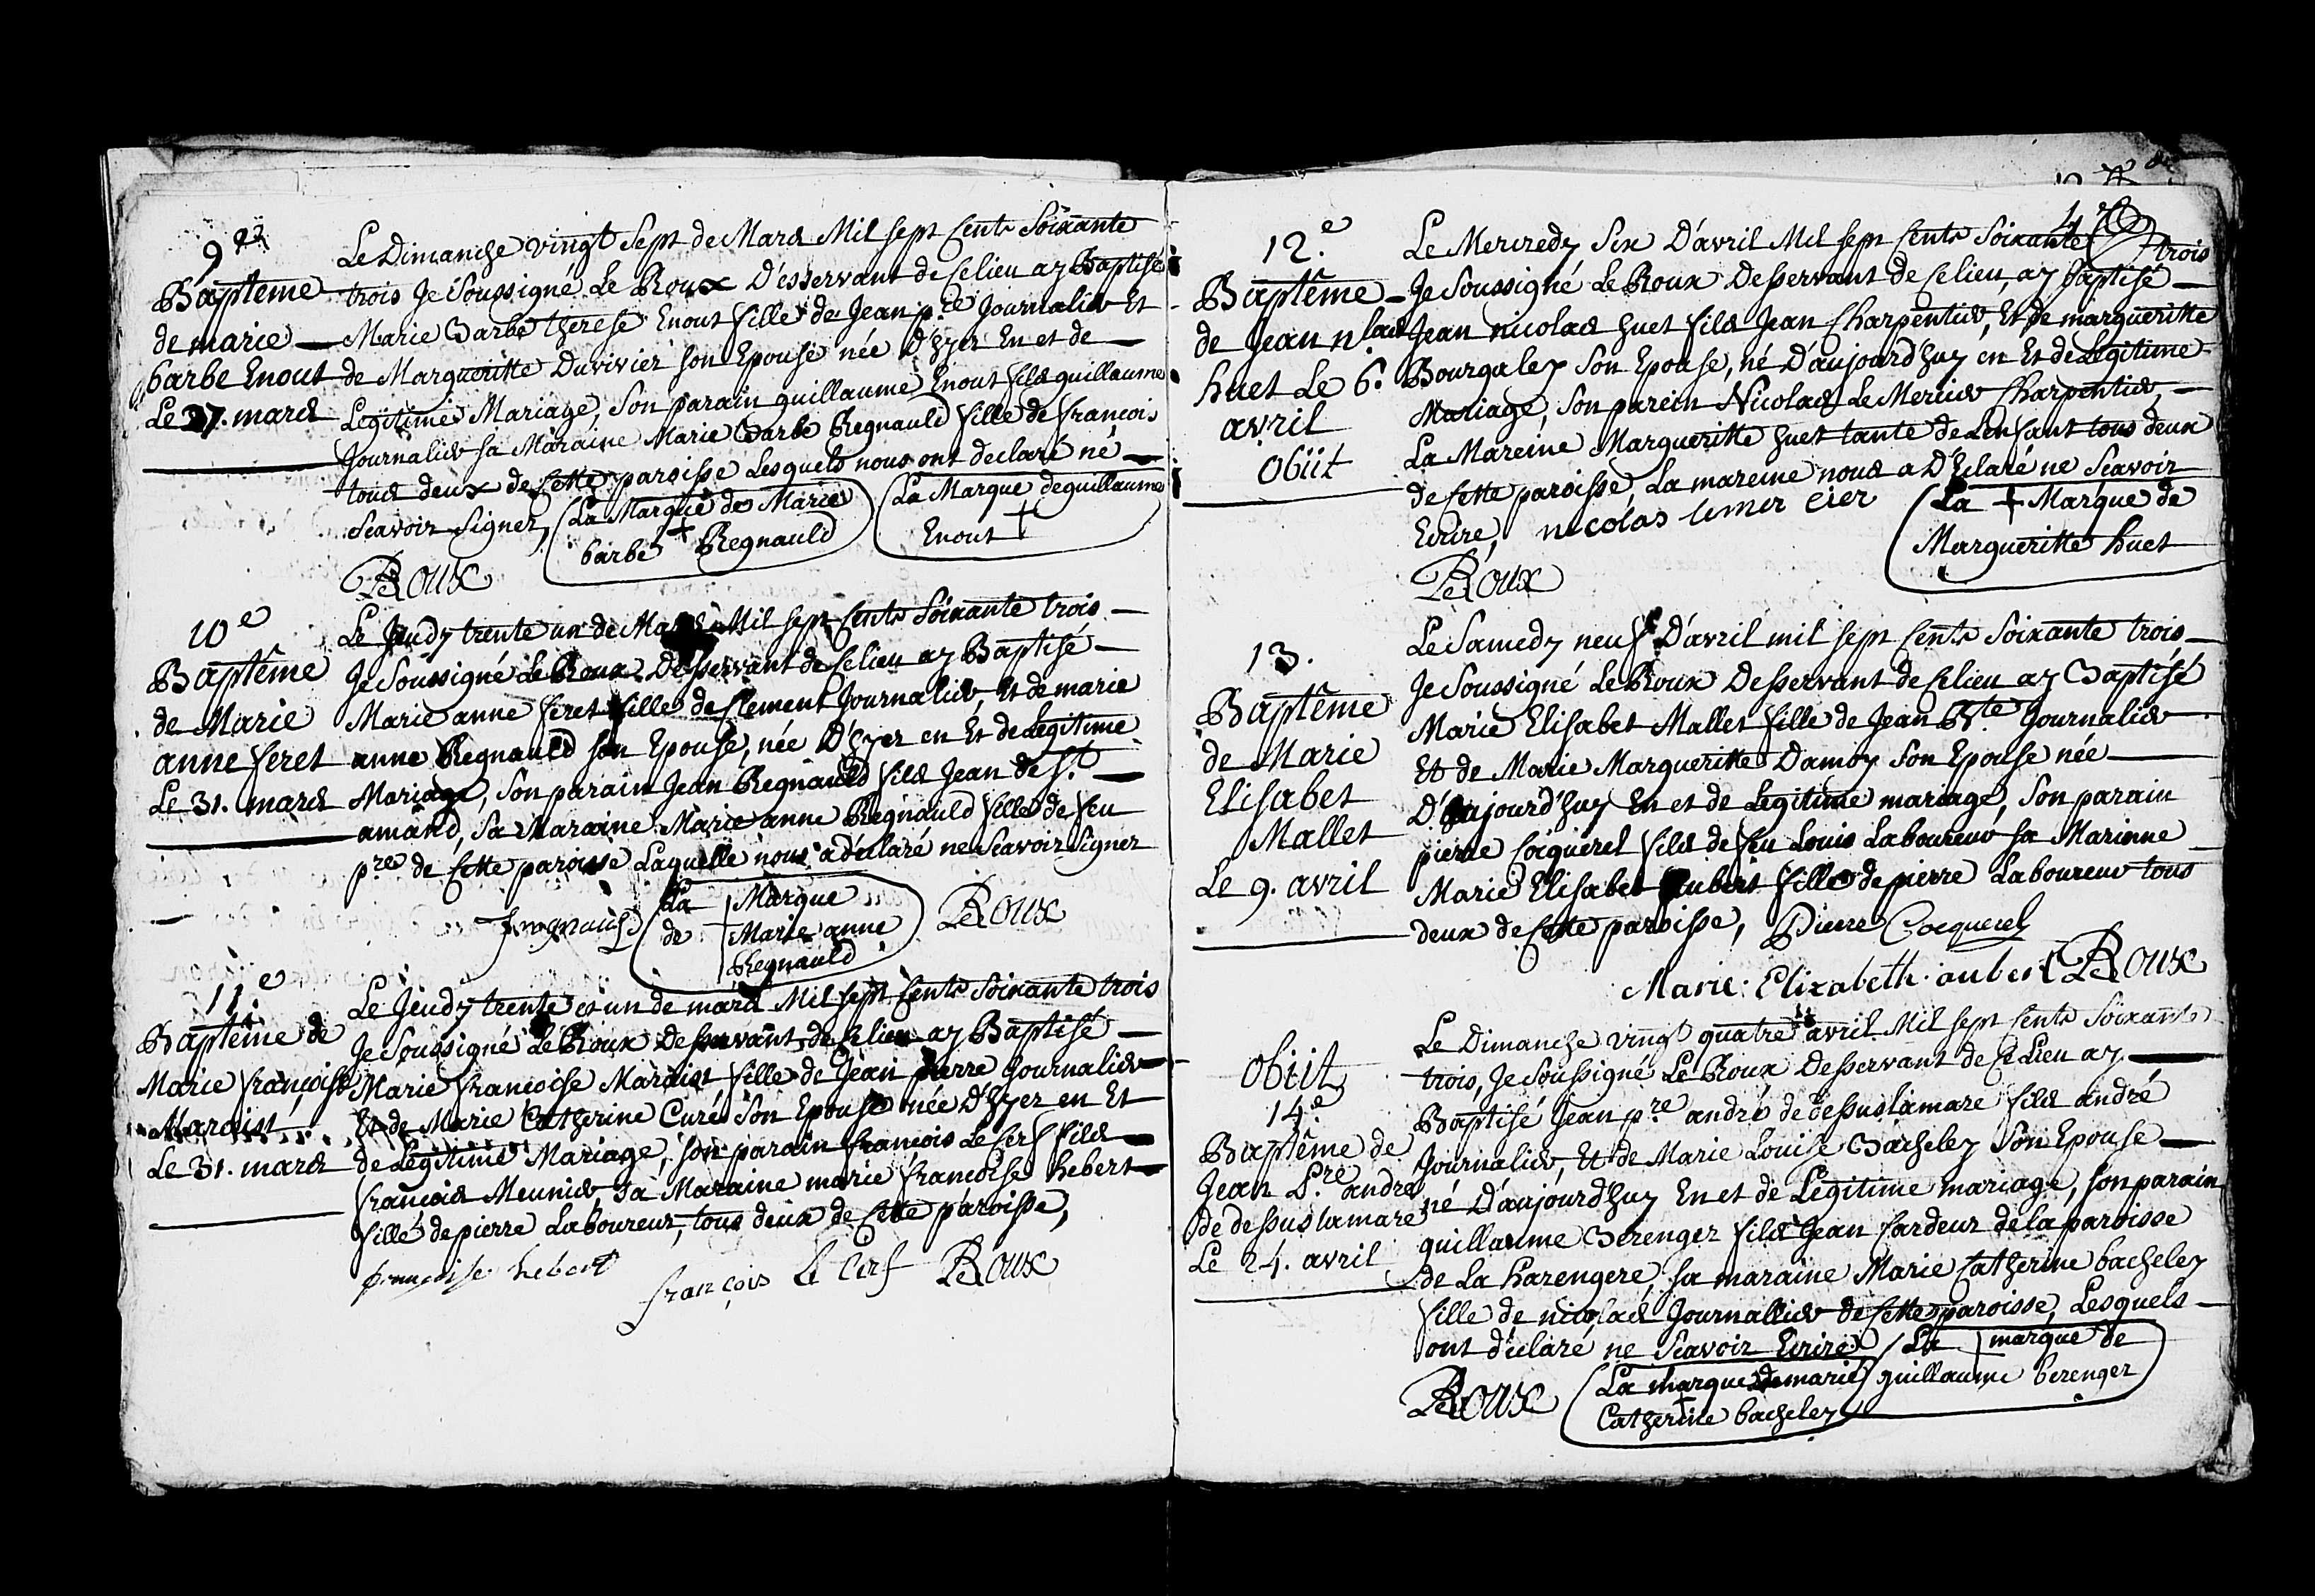 9
Baptême
de marie
barbe Enout
Le 27. mars
Le Dimanche vingt Sept de Mars Mil sept Cents Soixante
trois Je Soussigné Le Roux Desservant de Ce lieu ay Baptisé
Marie Barbe therese Enout fille de Jean p.re Journalier Et
de Margueritte Duvivier son Epouse née D'hyer En et de
Legitime Mariage, Son parain guillaume Enout fils guillaume
Journalier sa Maraine Marie Barbe Regnauld fille de francois
tous deux de Cette paroisse Lesquels nous ont declaré ne
Scavoir Signer,
La Marque de Marie
barbe + Regnauld
La Marque de guillaume
Enout +
Le Roux
10e
Baptême
de Marie
anne feret
Le 31. mars
Le Jeudy trente un de Mars Mil sept Cents Soixante trois
Je Soussigné Le Roux Desservant de Ce lieu ay Baptisé
Marie anne feret fille de Clement Journalier, Et de marie
anne Regnauld son Epouse, née D'hyer en Et de Legitime
Mariage, Son parain Jean Regnauld fils Jean de St
amand, Sa Maraine Marie anne Regnauld fille de feu
p.re de Cette paroisse Laquelle nous a déclaré ne Scavoir Signer
La + Marque
de Marie anne
Regnauld
Le Roux
11.e
Baptême de
Marie françoise
Maraist
Le 31. mars
Le Jeudy trente et un de mars Mil sept Cents Soixante trois
Je Soussigné Le Roux Desservant de Ce lieu ay Baptisé
Marie francoise Maraist fille de Jean pierre Journalier
Et de Marie Catherine Curé Son Epouse née D'hyer en Et
de Legitime Mariage, son parain françois Le Cerf fils
françois Meunier, Sa Maraine marie francoise hebert
fille de pierre Laboureur, tous deux de Cette paroisse,
françoise hebert
françois le Cerf
Le Roux
4
12.e
Baptême
de Jean n.las
huet Le 6.
avril
Obiit
Le Mercredy Six D'avril Mil sept Cents Soixante trois
Je Soussigné Le Roux Desservant de Ce lieu, ay Baptisé
Jean nicolas huet fils Jean Charpentier, Et de margueritte
Bourgaley Son Epouse, né D'aujourd'huy en Et de Legitime
Mariage, Son parein Nicolas Le Mercier Charpentier,
La Mareine Margueritte huet tante de L'enfant tous deux
de Cette paroisse, La mareine nous a Déclaré ne Scavoir
Ecrire, nicolas lemer cier
La + Marque de
Margueritte huet
Le Roux
13.
Baptême
de Marie
Elisabet
Mallet
Le 9. avril
Le Samedy neuf D'avril mil sept Cents Soixante trois
Je Soussigné Le Roux Desservant de Ce lieu ay Baptisé
Marie Elisabet Mallet fille de Jean B.te Journalier
Et de Marie Margueritte Damoy Son Epouse née
D'aujourd'huy En et de Legitime mariage, Son parain
pierre Coiquerel fils de feu Louis Laboureur sa Marinne
Marie Elisabet Aubert fille de pierre Laboureur tous
deux de Cette paroisse, Pierre Cocquerel
Marie. Elizabeth. aubert Le Roux
Obiit
14.e
Baptême de
Jean P.re andré
de dessuslamare
Le 24. avril
Le Dimanche vingt quatre avril Mil sept Cents Soixante
trois, Je Soussigné Le Roux Desservant de Ce Lieu ay
Baptisé Jean p.re andré de dessuslamare fils andré
Journalier, Et de Marie Louise Bacheley Son Epouse
né D'aujourd'huy En et de Legitime mariage, son parain
guillaume Berenger fils Jean Cardeur de la paroisse
de La harengere, sa maraine Marie Catherine bacheley
fille de nicolas Journallier de Cette paroisse, Lesquels
ont déclaré ne Scavoir Ecrire
La + marque de
guillaume berenger
Le Roux
La marque de marie
Catherine + bacheley